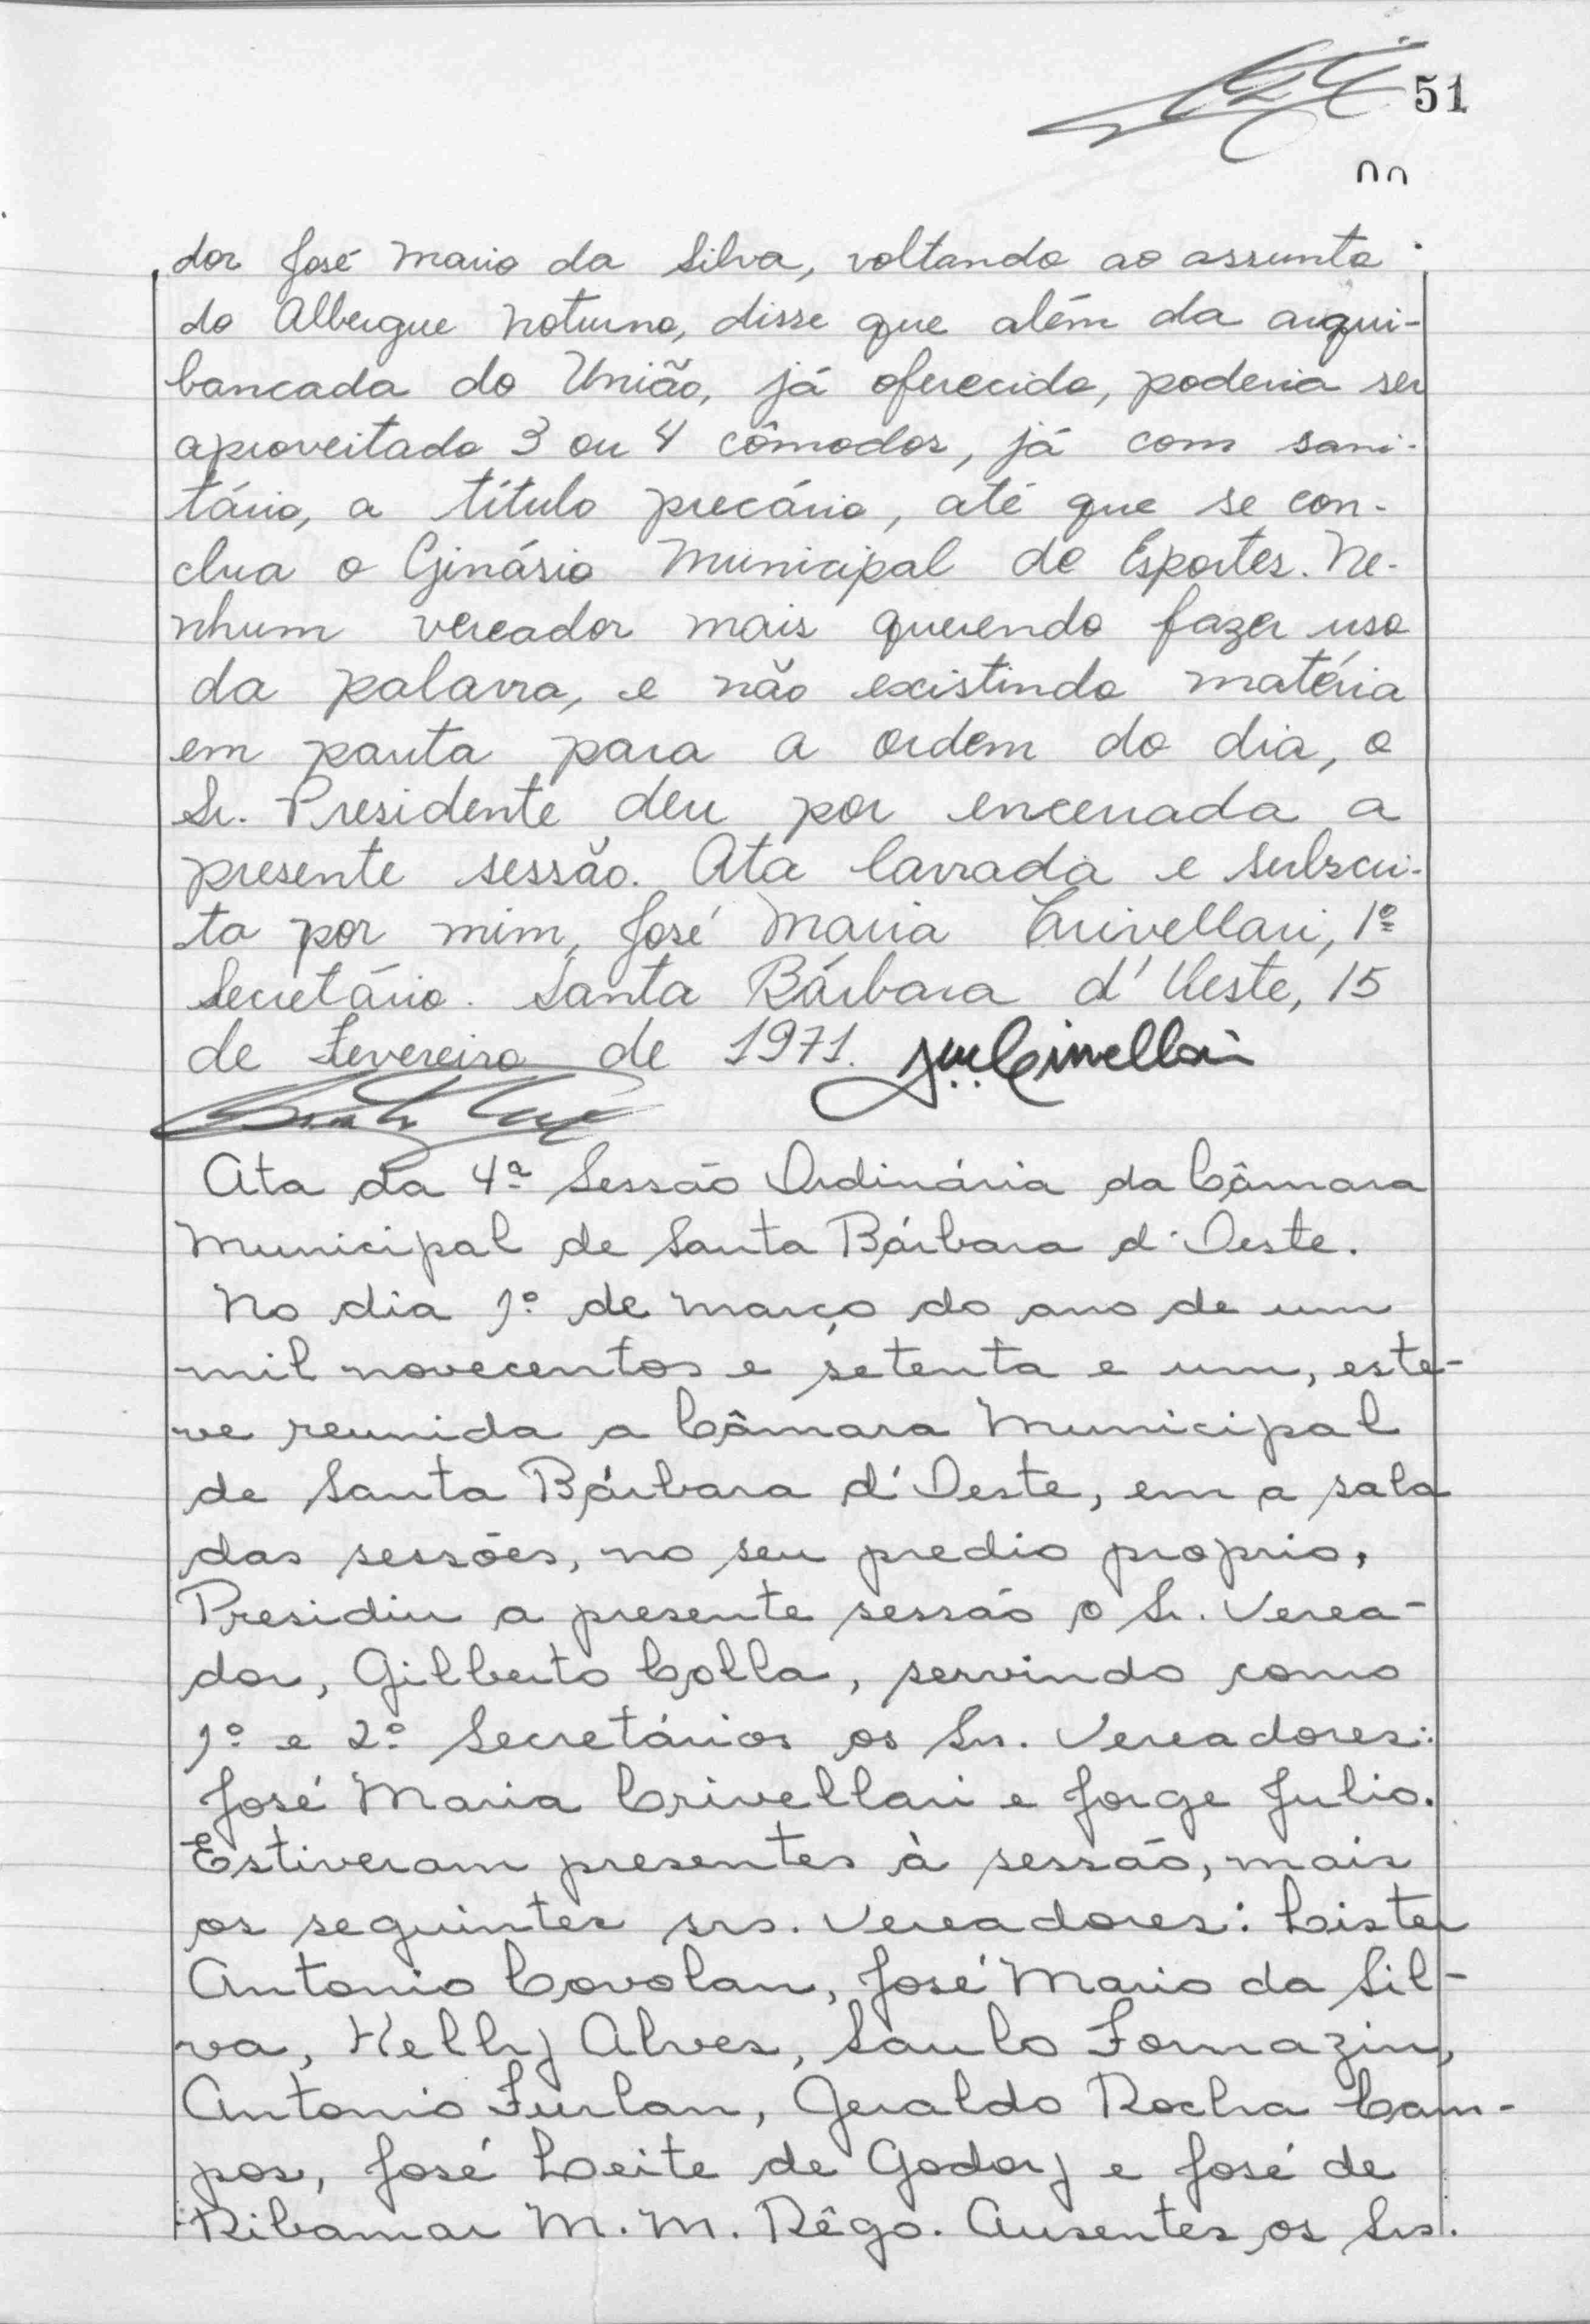 51
dor José Mario da Silva, voltando ao assunto
do Albergue Noturno, disse que além da arqui-
bancada do União, já oferecido, poderia ser
aproveitado 3 ou 4 cômodos, já com sani-
tário, a título precário, até que se con-
clua o Ginásio Municipal de Esportes. Ne-
nhum vereador mais querendo fazer uso
da palavra, e não existindo matéria
em pauta para a ordem do dia, o
Sr. Presidente deu por encerrada a
presente sessão. Ata lavrada e subscri-
ta por mim, José Maria Crivellari, 1º
Secretário. Santa Bárbara d'Oeste, 15
de Fevereiro de 1971.
Ata da 4ª Sessão Ordinária da Câmara
Municipal de Santa Bárbara d'Oeste.
No dia 1º de março do ano de um
mil novecentos e setenta e um, este-
ve reunida a Câmara Municipal
de Santa Bárbara d'Oeste, em a sala
das sessões, no seu predio proprio.
Presidiu a presente sessão o Sr. Verea-
dor, Gilberto Colla, servindo como
1º e 2º Secretários os Srs. Vereadores:
José Maria Crivellari e Jorge Julio.
Estiveram presentes à sessão, mais
os seguintes srs. Vereadores: Lister
Antonio Covolan, José Mario da Sil-
va, Kelly Alves, Saulo Fornazin,
Antonio Furlan, Geraldo Rocha Cam-
pos, José Leite de Godoy e José de
Ribamar M. M. Rêgo. Ausentes os Srs.